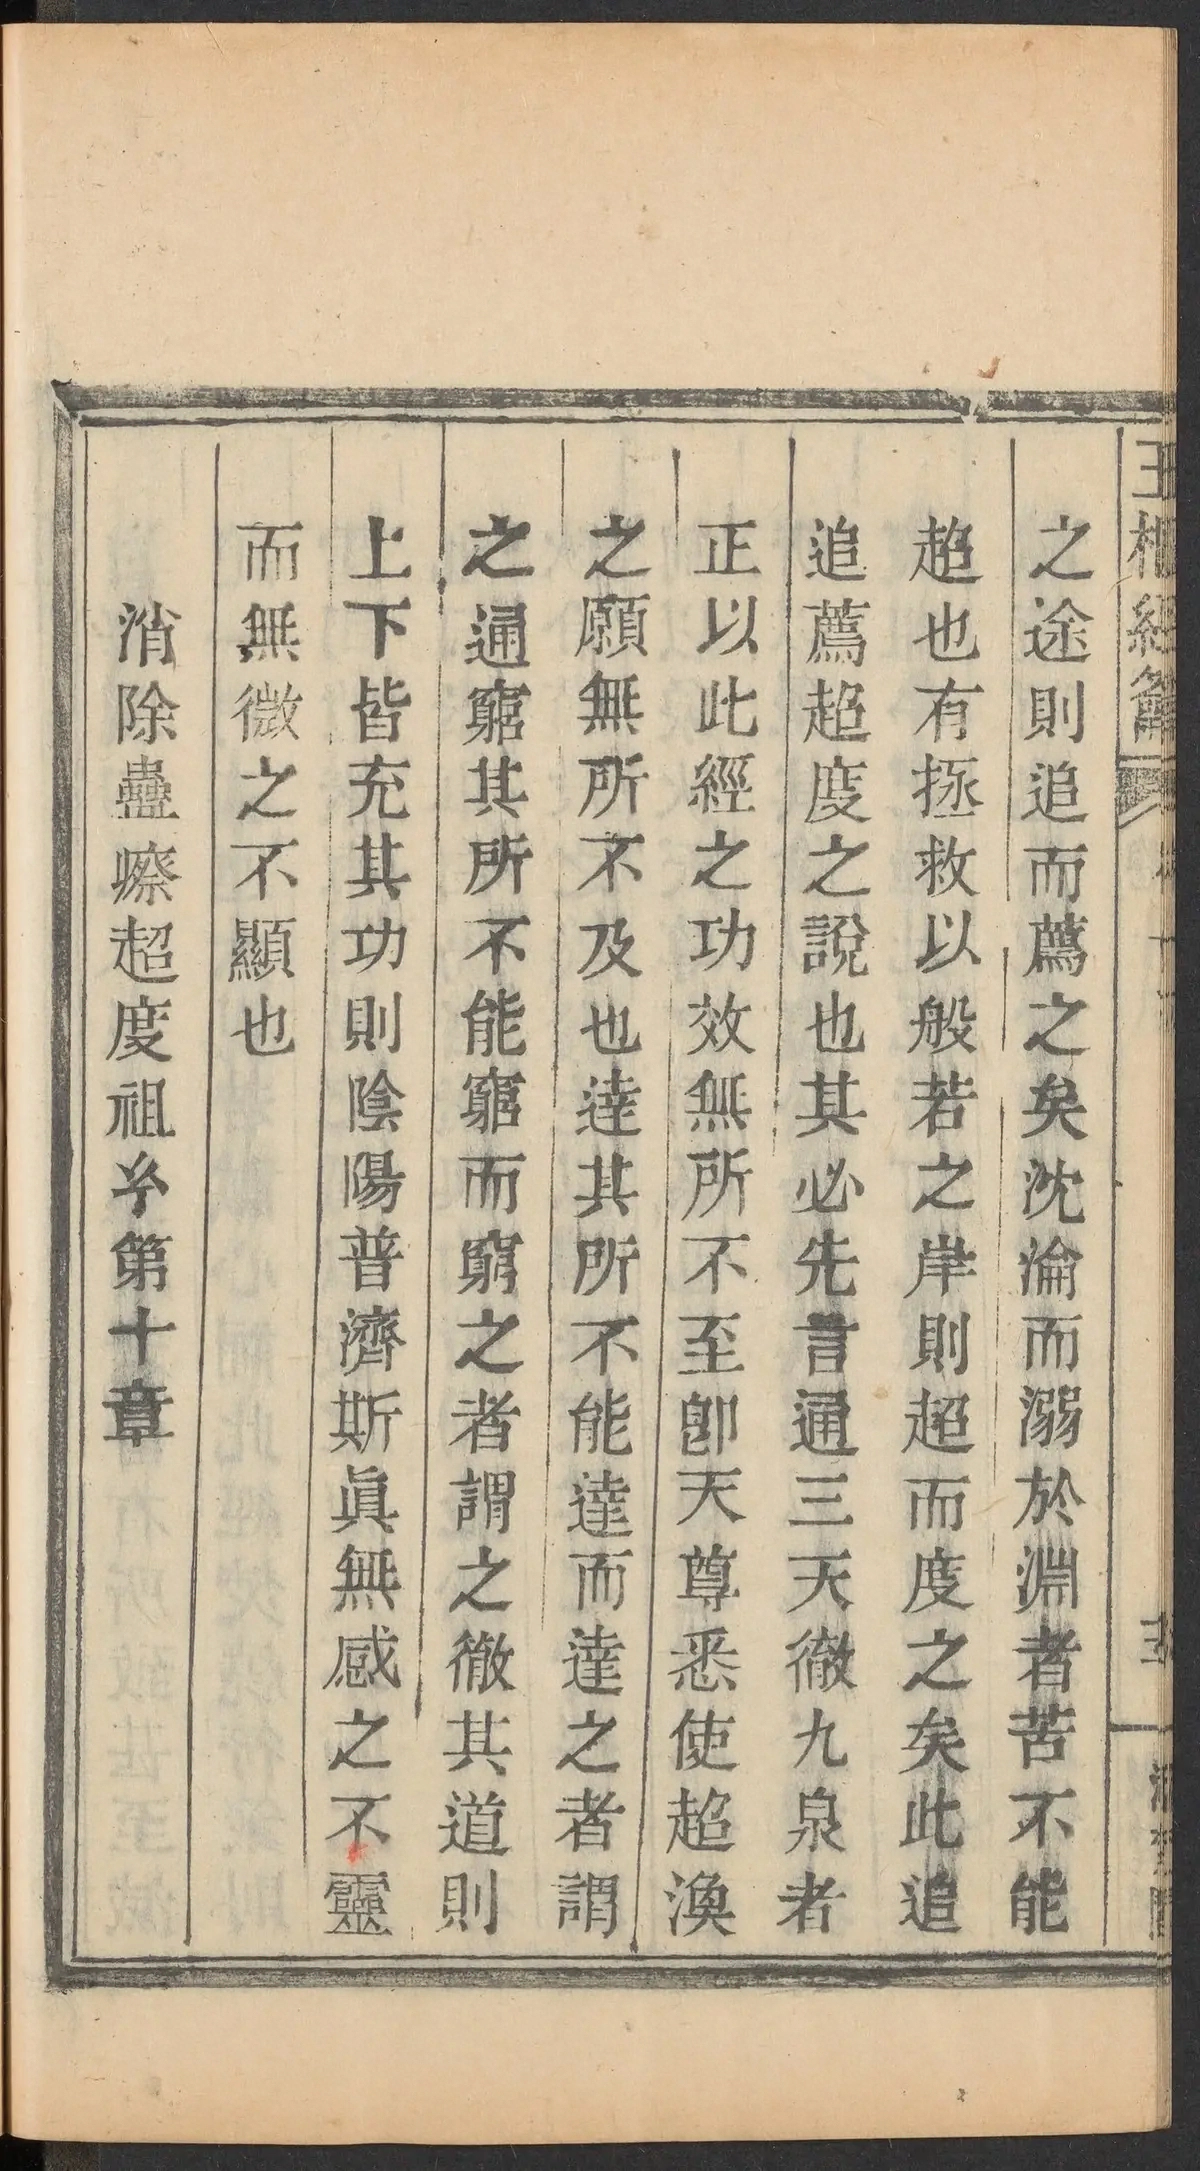 玉樞經籥
之途則追而薦之矣沈淪而溺於淵者苦不能
趨也有拯救以般若之岸則超而度之矣此追
追薦超度之說也其必先言通三天徹九泉者
正以此經之功效無所不至卽天尊悉使超渙
之願無所不及也達其所不能達而達之者謂
之通窮其所不能窮而窮之者謂之徹其道則
上下皆充其功則陰陽普濟斯眞無感之不靈
而無微之不顯也
消除蠱瘵超度祖第十章